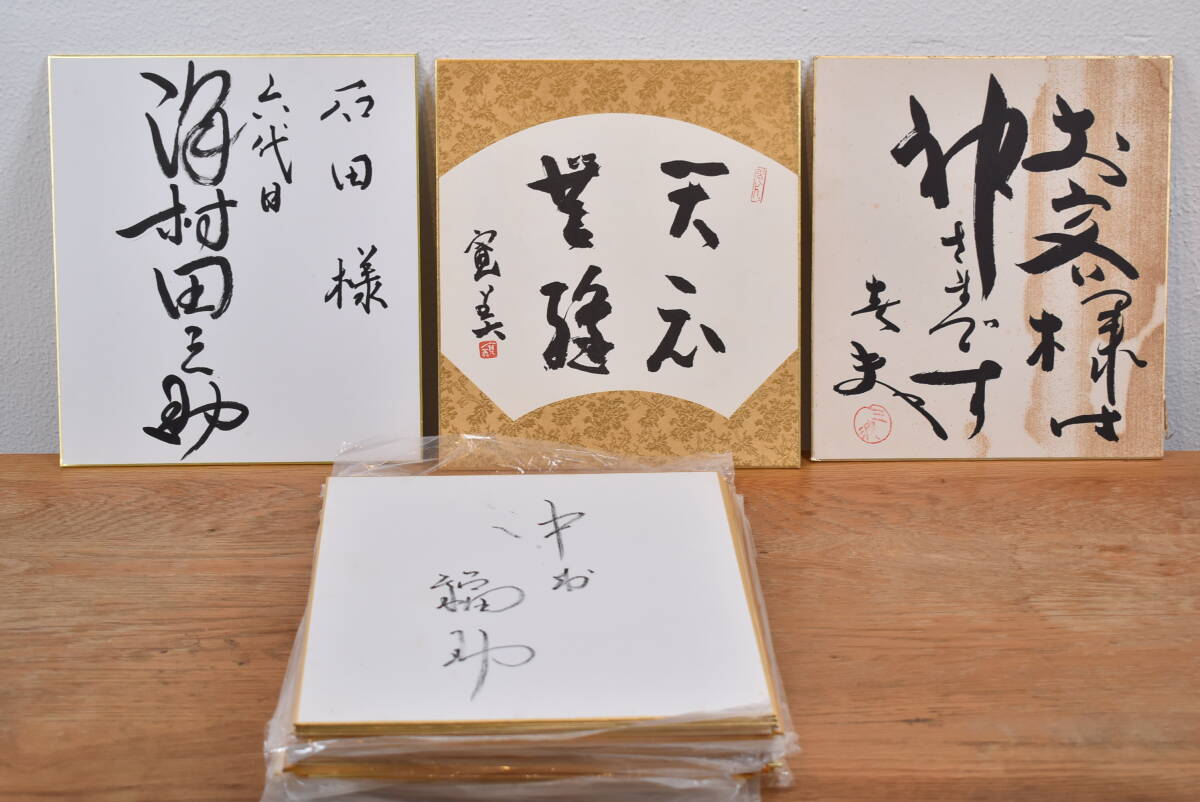 石田様
六代目
澤村田之助
天衣
無縫
寛美
お客様は
神さまです
春夫
中村
福助